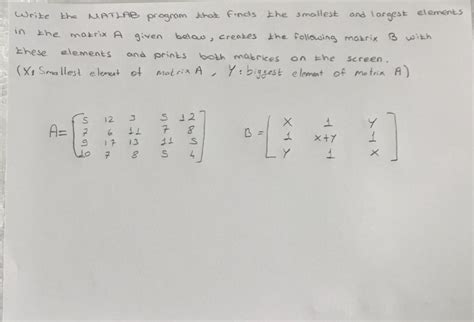 Write the MATLAB program that finds the smallest and largest elements
in the matrix A given below, creates the following matrix B with
these elements and prints both matrices on the screen.
(X: Smallest element of matrix A , Y: biggest element of matrix A)
A= [ 5 12 3 5 12
2 6 11 7 8
9 17 13 11 5
10 7 8 5 4 ]
B = [ X 1 Y
1 x+y 1
Y 1 X ]